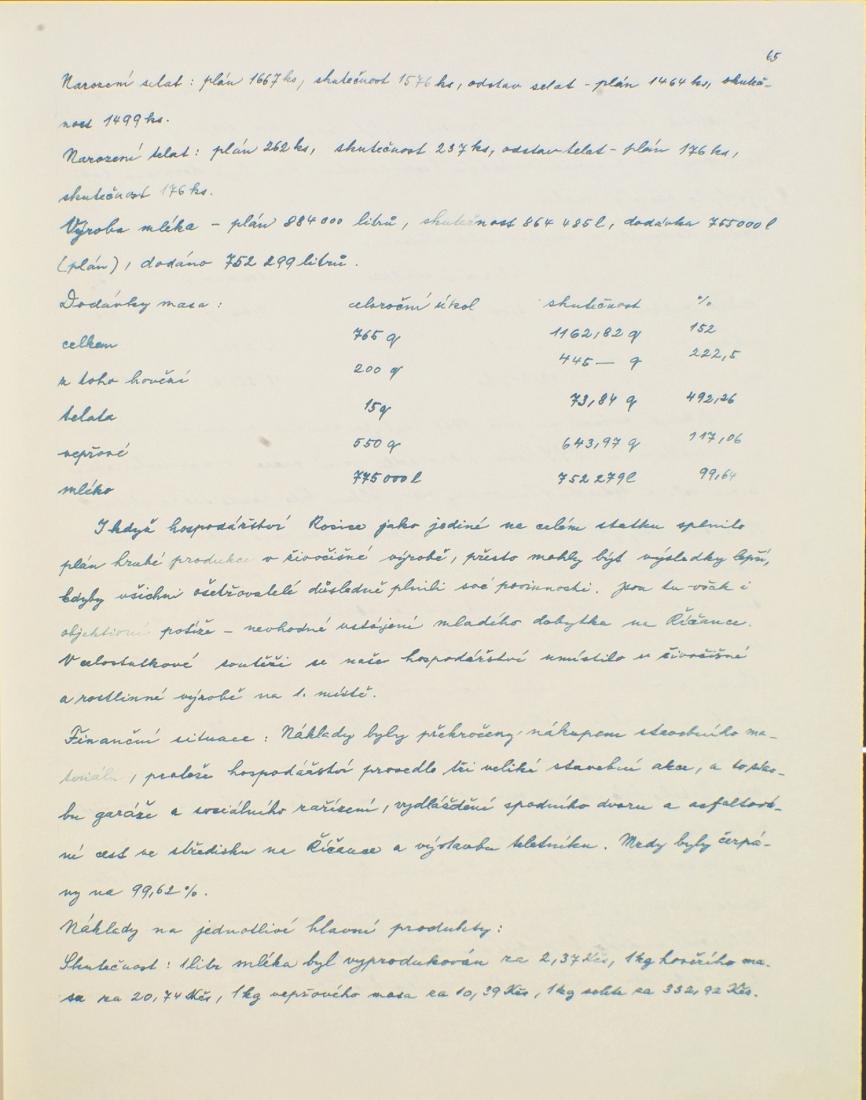 65
Narození selat : plán 1667 ks, skutečnost 1576 ks, odstav selat - plán 1464 ks, skuteč-
nost 1499 ks.
Narození telat : plán 262 ks, skutečnost 237 ks, odstav telat - plán 176 ks,
skutečnost 176 ks.
Výroba mléka - plán 884 000 litrů, skutečnost 864 485 l, dodávka 755000 l
(plán), dodáno 752 299 litrů.
Dodávky masa : celoroční úkol skutečnost %
celkem 765 q 1162,82 q 152
z toho hovězí 200 q 445 — q 222,5
telata 15 q 73,84 q 492,26
vepřové 550 q 643,97 q 117,06
mléko 775 000 l 752 279 l 99,64
I když hospodářství Rosice jako jediné na celém statku splnilo
plán hrubé produkce v živočišné výrobě, přesto mohly být výsledky lepší,
kdyby všichni ošetřovatelé důsledně plnili své povinnosti. Jsou tu však i
objektivní potíže - nevhodné ustájení mladého dobytka na Říčance.
V celostatkové soutěži se naše hospodářství umístilo v živočišné
a rostlinné výrobě na 1. místě.
Finanční situace : Náklady byly překročeny nákupem stavebního ma-
teriálu, protože hospodářství provedlo tři veliké stavební akce, a to stav-
bu garáže a sociálního zařízení, vydláždění spodního dvoru a asfaltová-
ní cest ve středisku na Říčance a výstavbu teletníku. Mzdy byly čerpá-
ny na 99,62 %.
Náklady na jednotlivé hlavní produkty :
Skutečnost : 1 litr mléka byl vyprodukován za 2,37 Kčs, 1 kg hovězího ma-
sa za 20,74 Kčs, 1 kg vepřového masa za 10,39 Kčs, 1 kg selete za 332,92 Kčs.